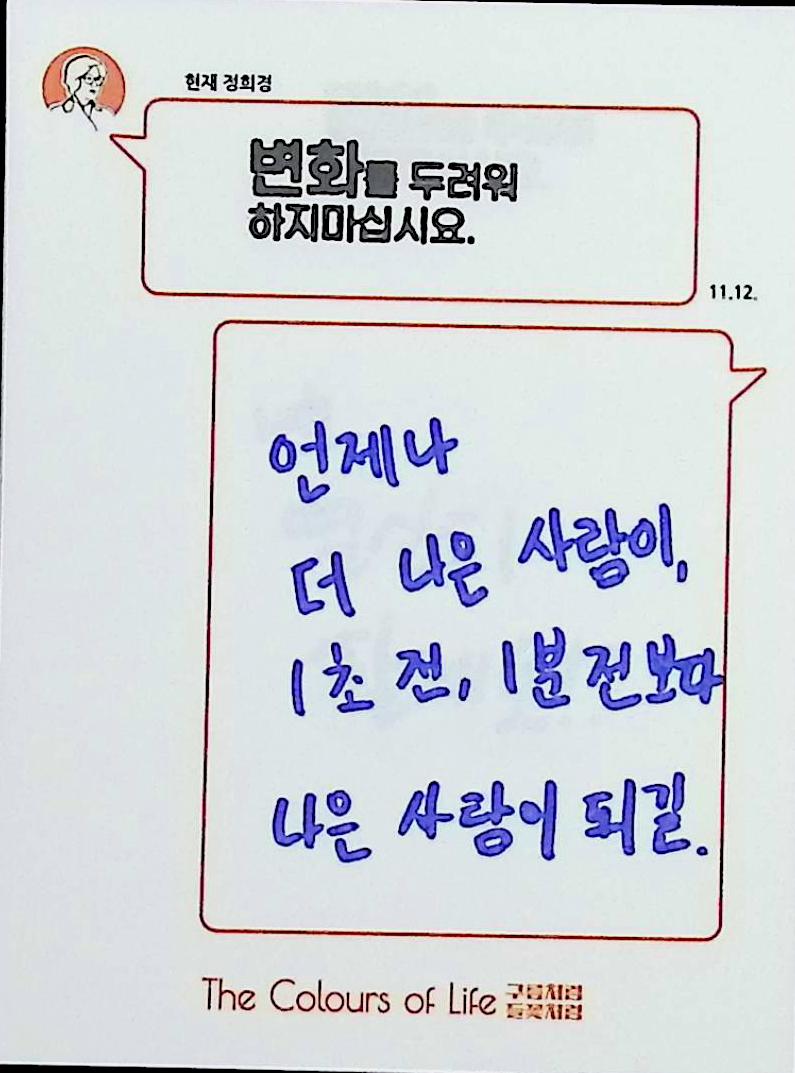 현재 정희경
변화를 두려워
하지마십시요.
11.12.
언제나
더 나은 사람이,
1초 전, 1분 전보다
나은 사람이 되길.
The Colours of Life 구름처럼
들꽃처럼